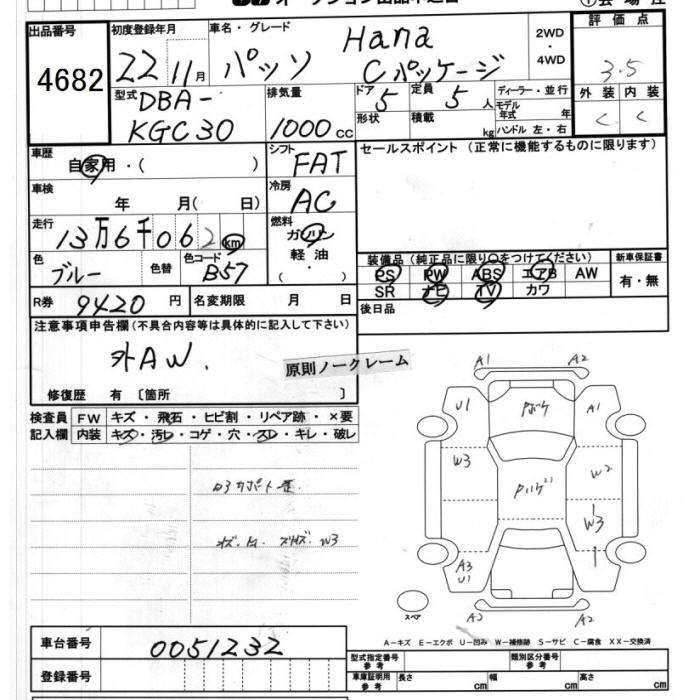 ①会場注
出品番号 初度登録年月 車名・グレード 2WD・4WD 評価点
4682 22年11月 パッソ Hana Cパッケージ 3.5
型式 排気量 ドア 定員 ディーラー・並行 外装 内装
DBA-KGC30 1000cc 5 5人 モデル年式 年 C C
形状 積載 kg ハンドル 左・右
車歴 シフト セールスポイント (正常に機能するものに限ります)
自家用・( ) FAT
車検 冷房
年 月( 日) AC
走行 燃料
13万6千062km ガソリン 軽油・( )
色 色替 色コード 装備品 (純正品に限り○をつけてください) 新車保証書
ブルー B57 PS PW ABS エアB AW 有・無
SR ナビ TV カワ
R券 9420円 名変期限 月 日 後日品
注意事項申告欄(不具合内容等は具体的に記入して下さい)
外AW.
原則ノークレーム
修復歴 有 〔箇所 〕
検査員 FW キズ・飛石・ヒビ割・リペア跡・×要
記入欄 内装 キズ・汚レ・コゲ・穴・スレ・キレ・破レ
A1 A2
U1 A1
W3 W2
W3
A3 U1
スペア A2 A2
A-キズ E-エクボ U-凹み W-補修跡 S-サビ C-腐食 XX-交換済
車台番号 0051232
型式指定番号 参考 類別区分番号 参考
登録番号
車庫証明用 参考 長さ cm 幅 cm 高さ cm